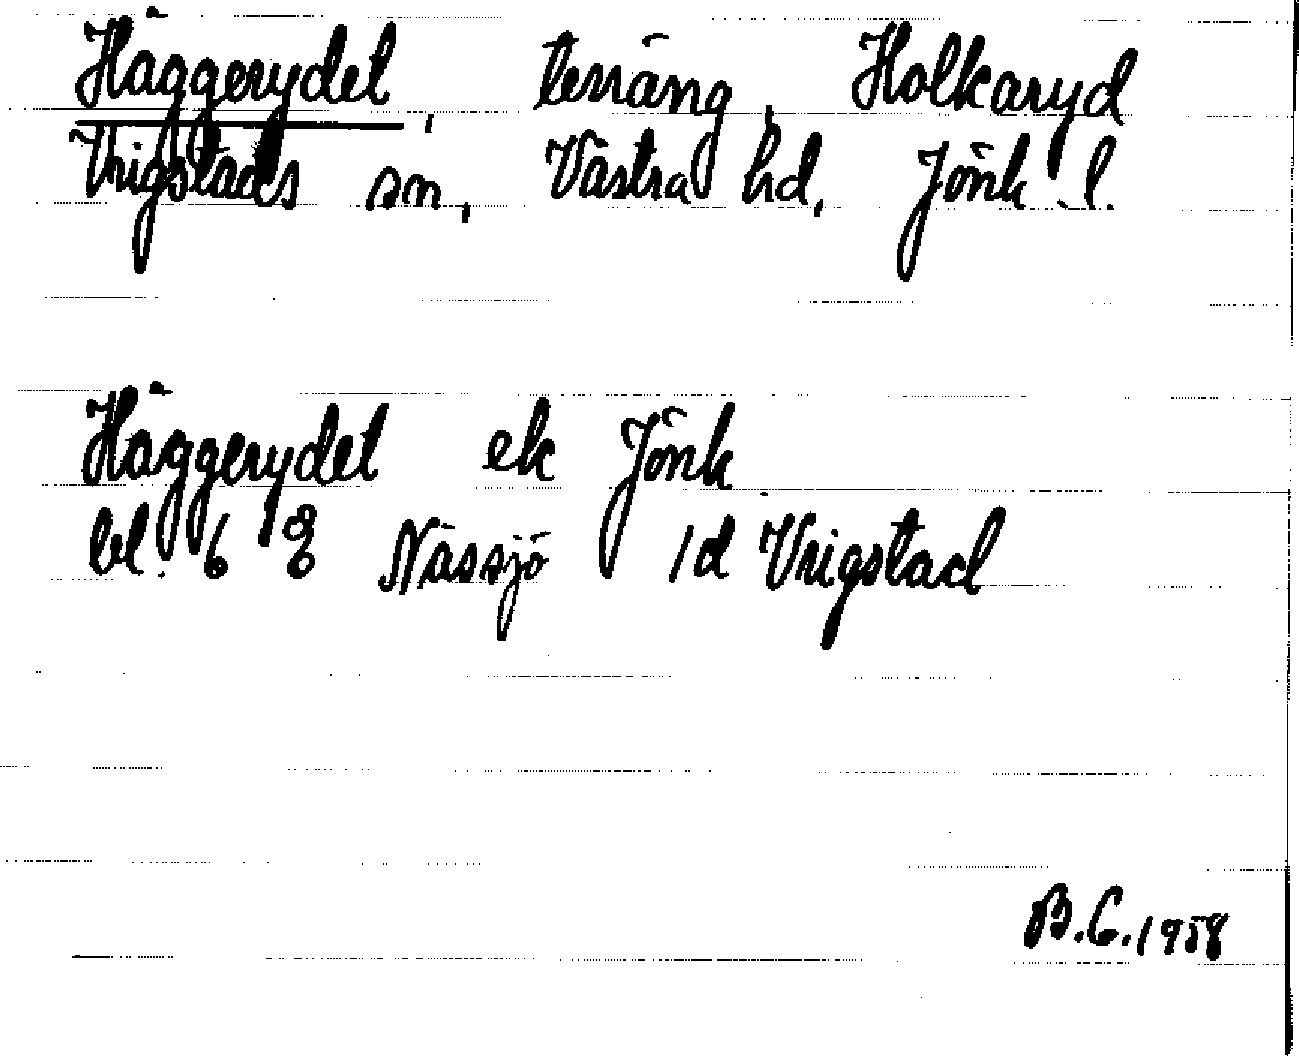 Häggerydet, terräng, Holkaryd
Vrigstads sn, Västra hd, Jönk. l.
Häggerydet ek Jönk
bl. 6 8 Nässjö 1d Vrigstad
B.G. 1958